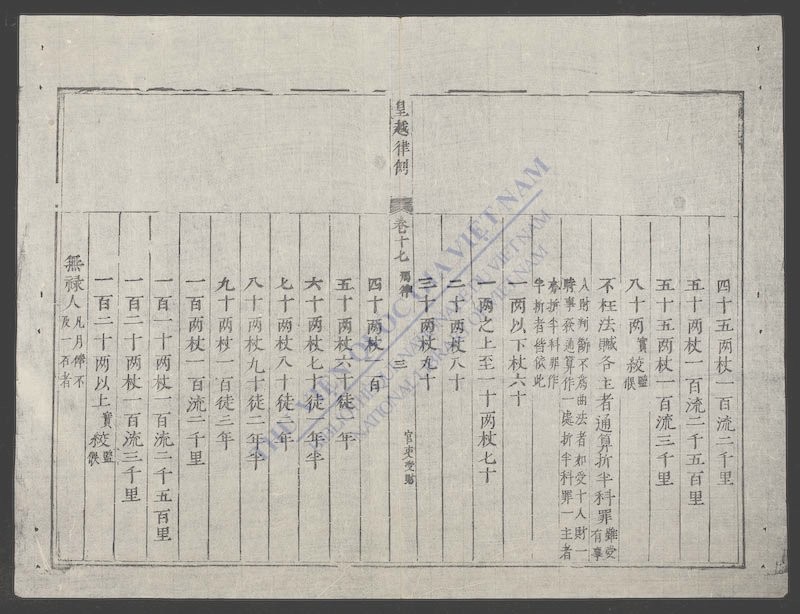 四十五两杖一百流二千里
五十两杖一百流二千五百里
五十五两杖一百流三千里
八十两實絞監候
不枉法贓各主者通算折半科罪雖受有事
人財判断不爲曲法者如受十人財一
時事發通算作一處折半科罪一主者
亦折半科罪作
半折者皆依此
一两以下杖六十
一两之上至一十两杖七十
二十两杖八十
三十两杖九十
皇越律例 卷十七 刑律 三 官吏受財
四十两杖一百
五十两杖六十徒一年
六十两杖七十徒一年半
七十两杖八十徒二年
八十两杖九十徒二年半
九十两杖一百徒三年
一百两杖一百流二千里
一百一十两杖一百流二千五百里
一百二十两杖一百流三千里
一百二十两以上實絞監候
無禄人凡月俸不及一石者
THƯ VIỆN QUỐC GIA VIỆT NAM
NATIONAL LIBRARY OF VIETNAM